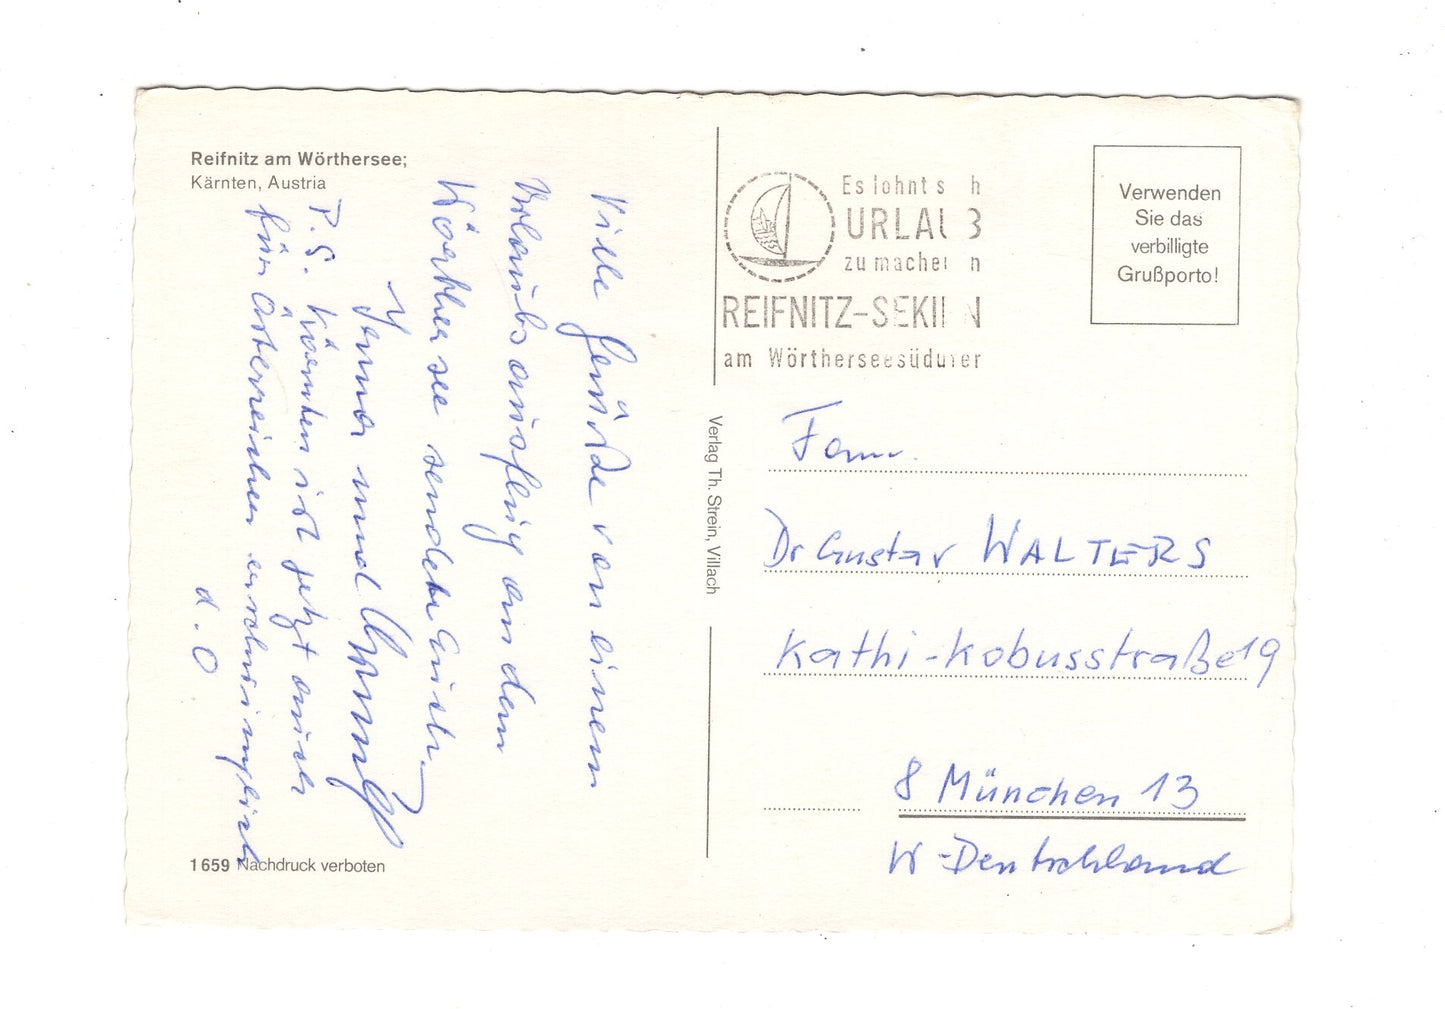 Reifnitz am Wörthersee;
Kärnten, Austria
Viele Grüße von einem
Urlaubsausflug an dem
Wörthersee sendet Euch
und
P.S. Kärnten ist jetzt auch
für Österreicher erschwinglich
d. O
1659 Nachdruck verboten
Verlag Th. Strein, Villach
Es lohnt s h
URLAU B
zu machen n
REIFNITZ-SEKI N
am Wörtherseesüdufer
Verwenden
Sie das
verbilligte
Grußporto!
Fam.
Dr Gustav WALTERS
Kathi-Kobusstraße 19
8 München 13
W-Deutschland